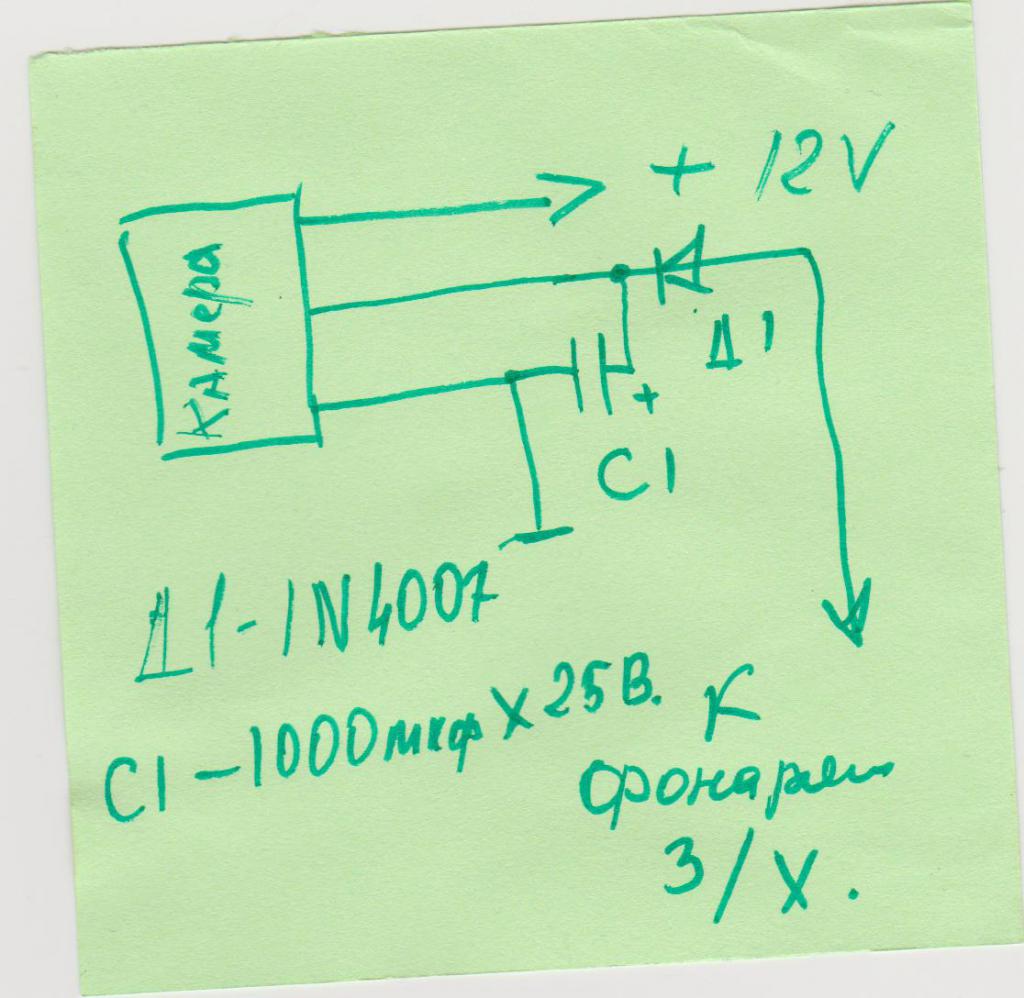 + 12V
Камера
Д1
+
C1
Д1-1N4007
C1-1000мкф X 25В.
К
фонарям
З/Х.